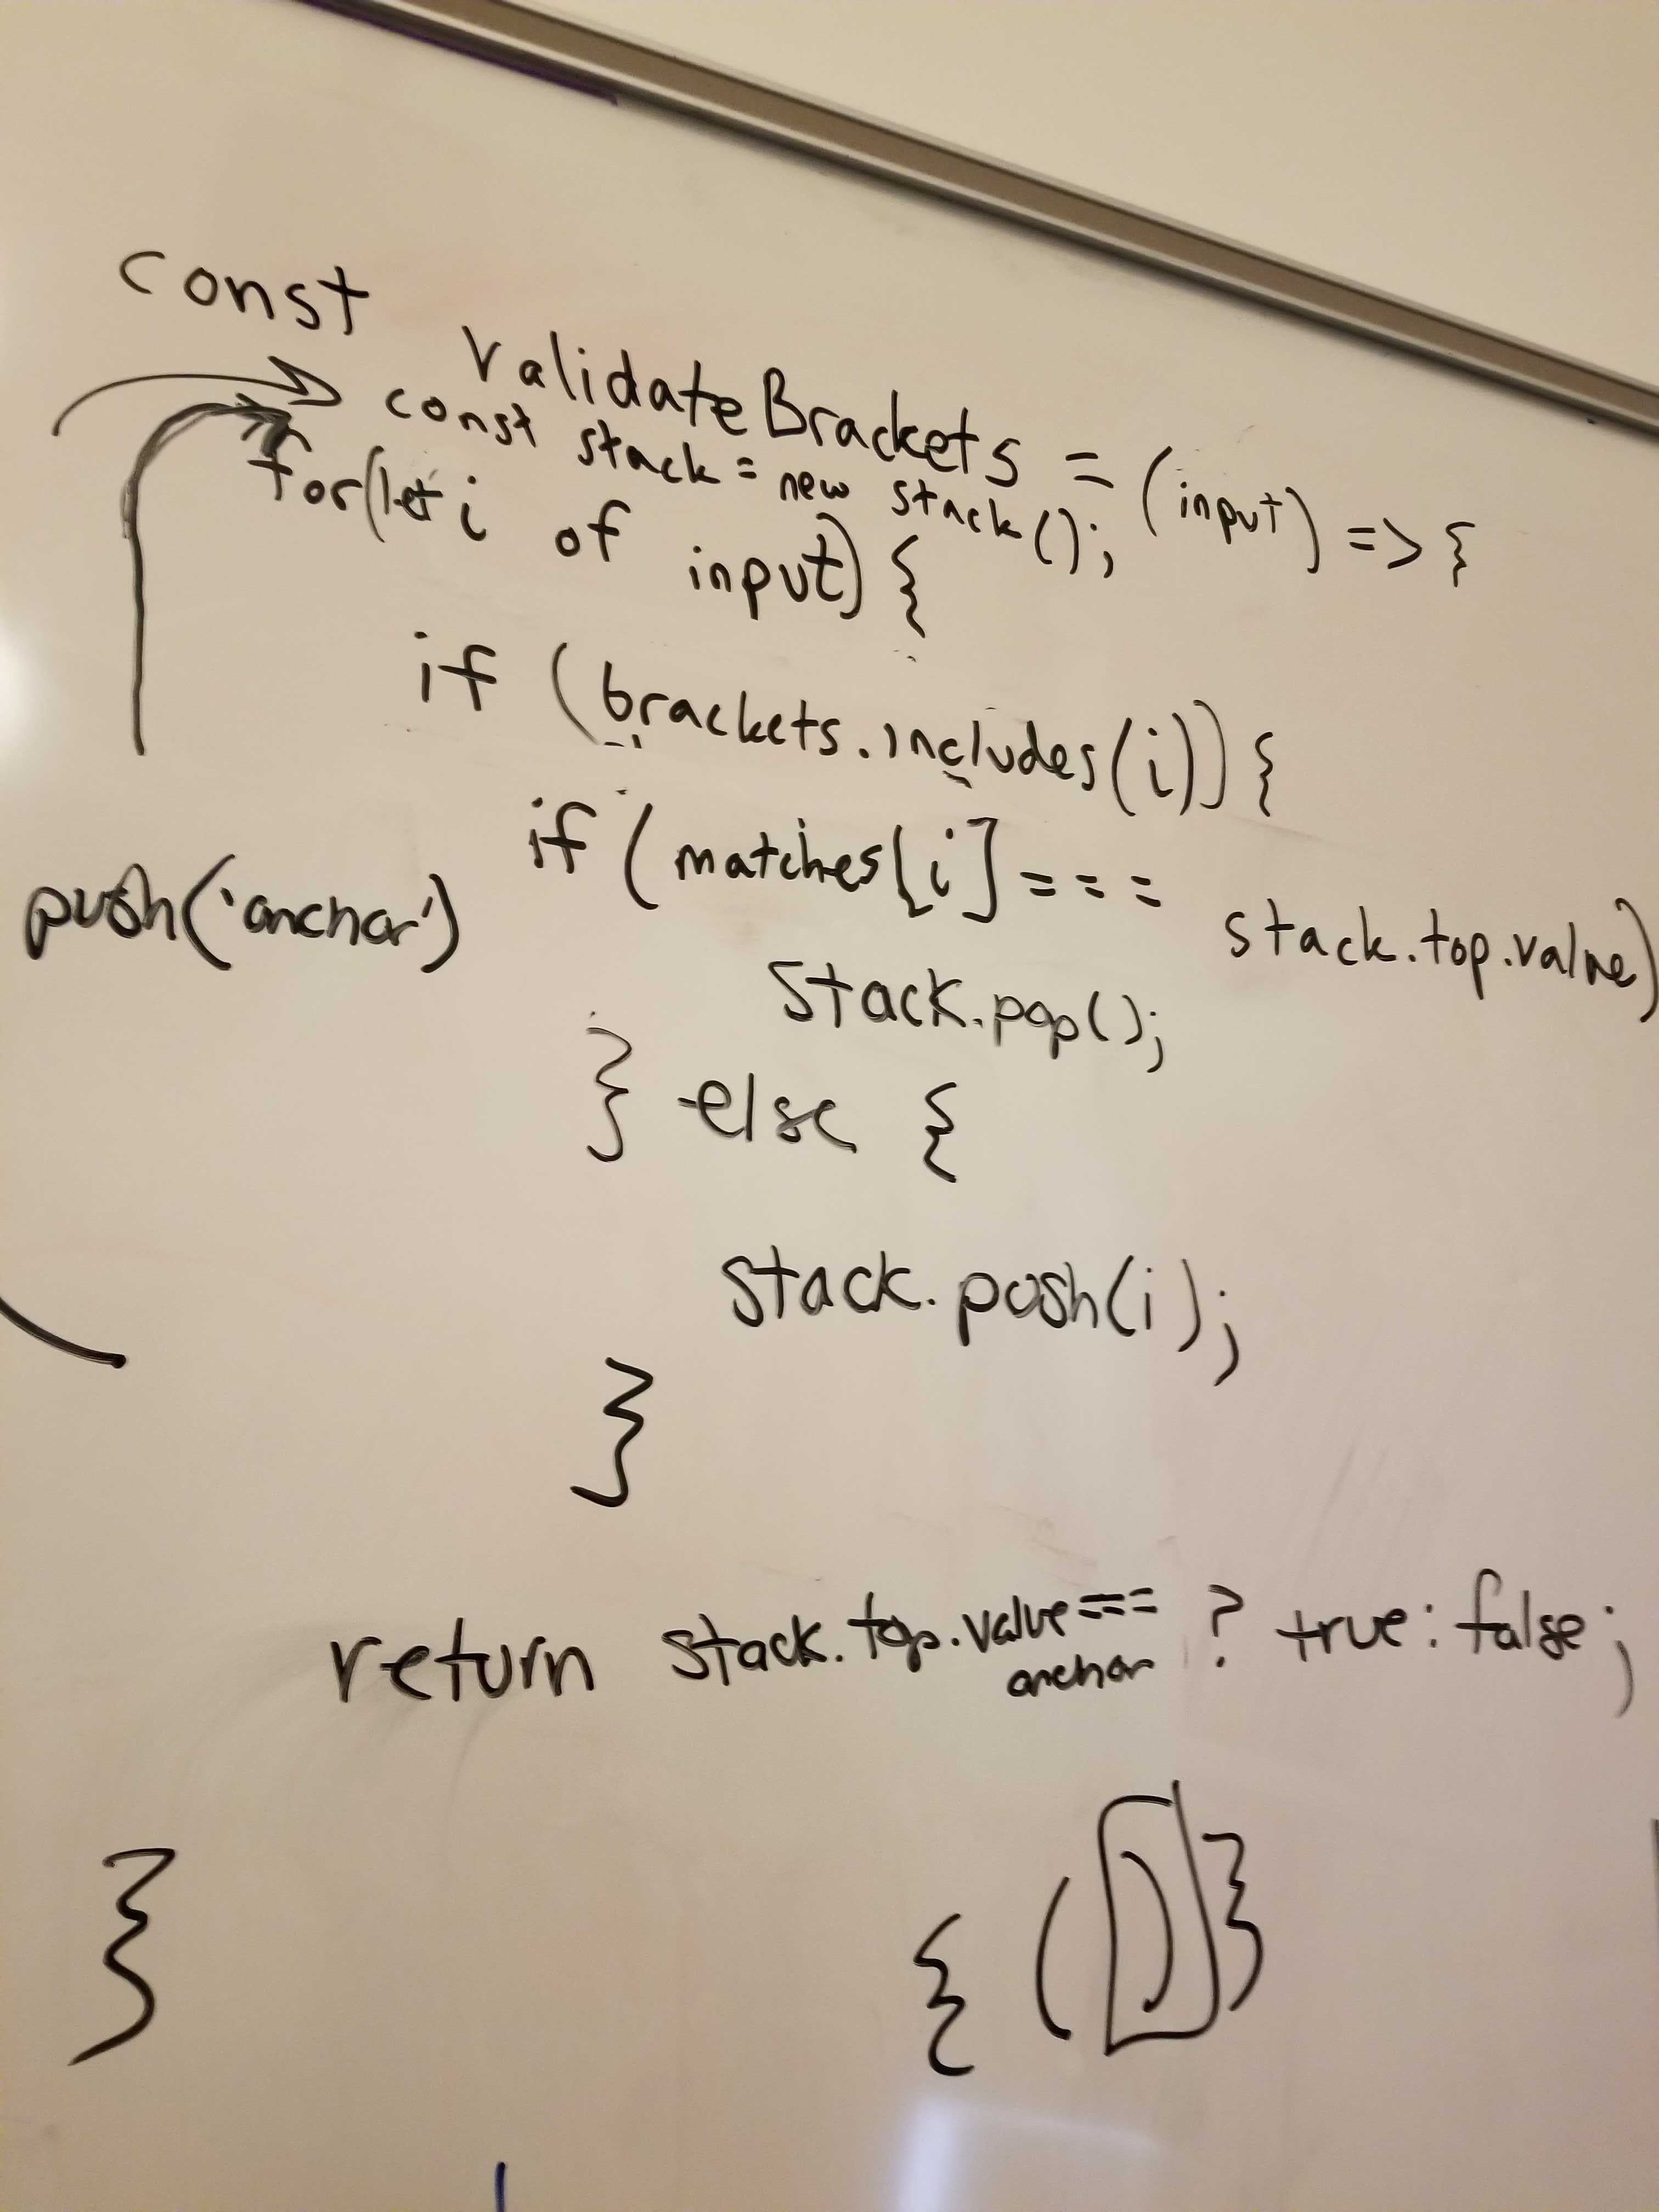 const validateBrackets = (input) => {
const stack = new stack();
for(let i of input) {
if (brackets.includes(i)) {
if (matches[i] === stack.top.value)
push('anchor')
stack.pop();
} else {
stack.push(i);
}
return stack.top.value === anchor ? true : false;
}
{ ( [ ) ] }